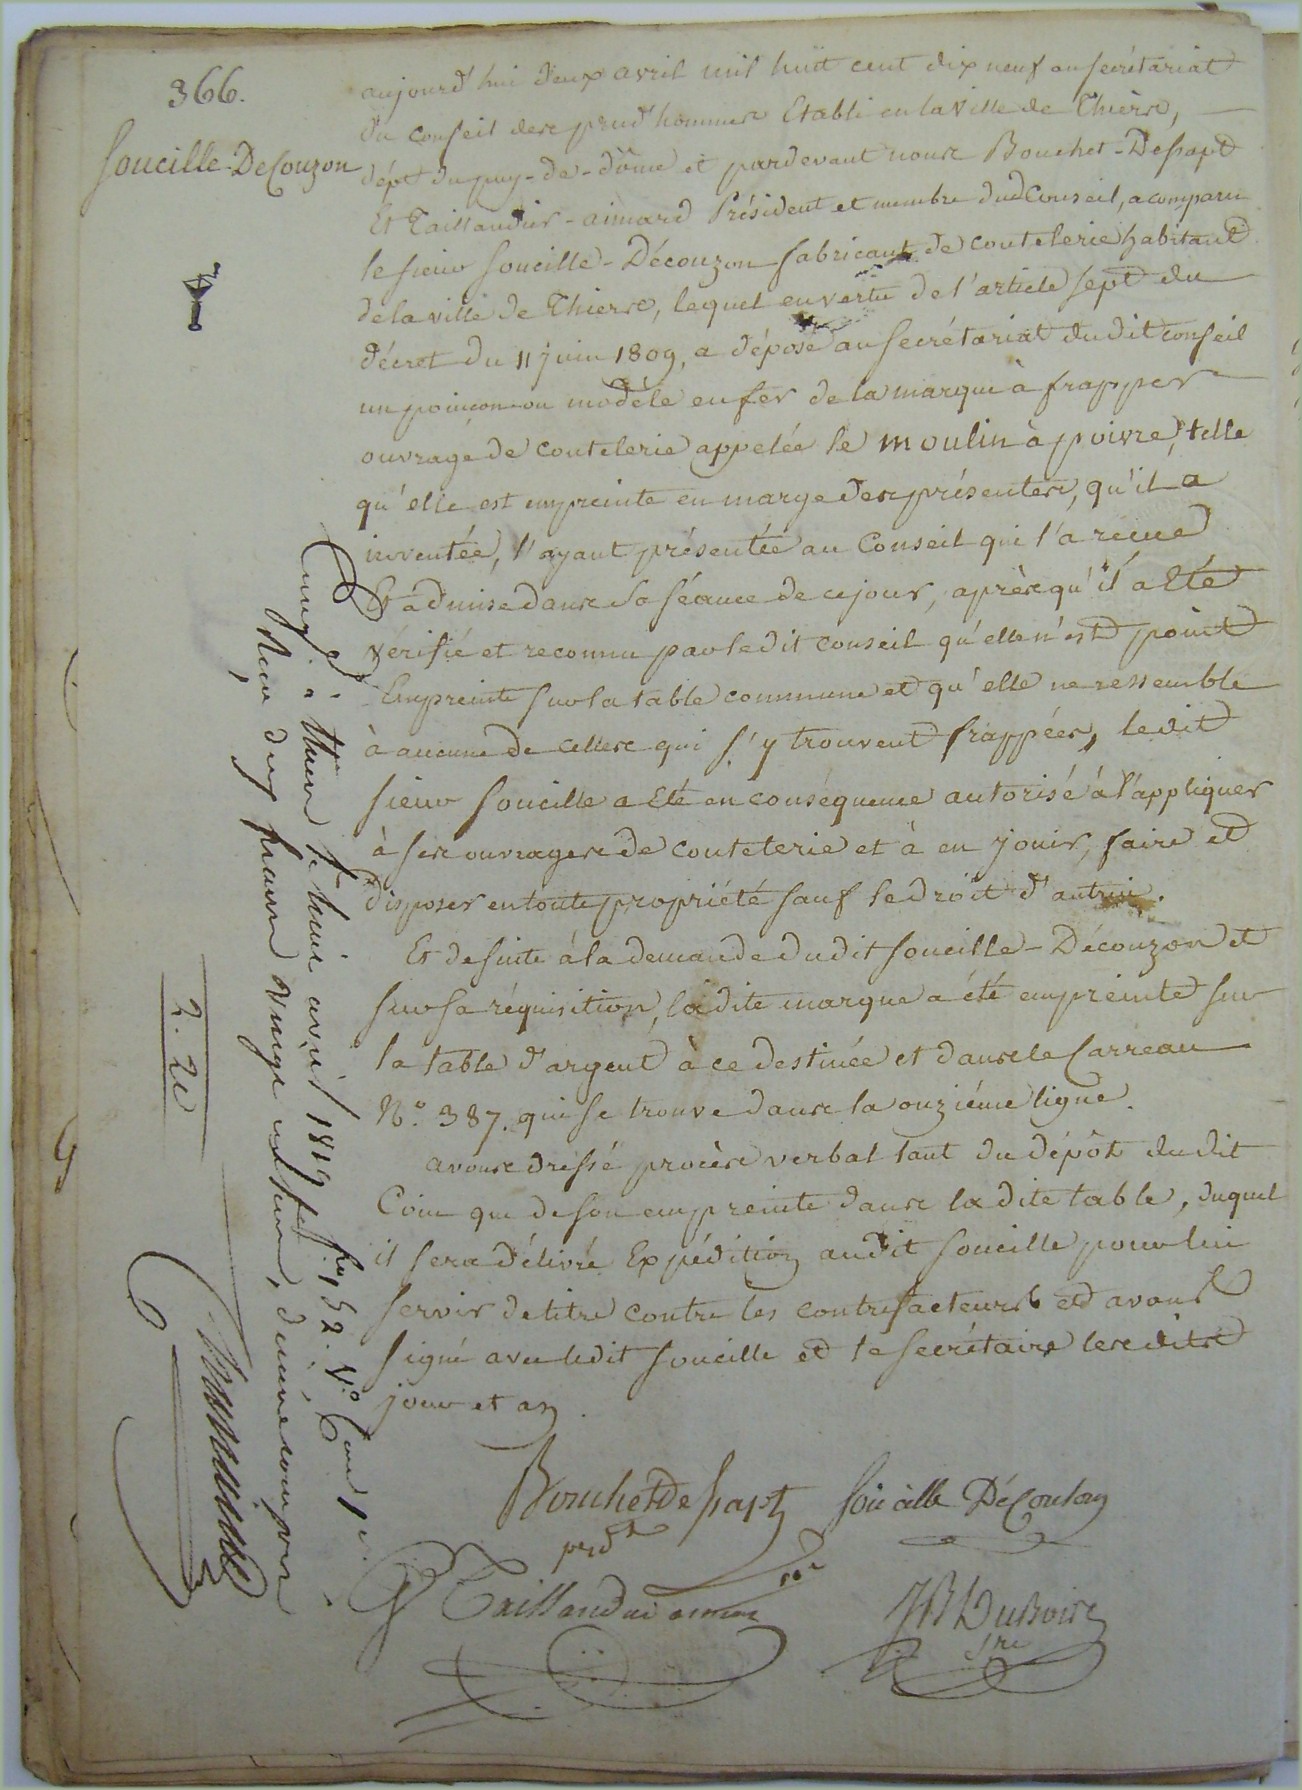 366.
Soucille-Decouzon
aujourd'hui deux avril mil huit cent dix neuf au secrétariat
du conseil des prud'hommes Etabli en la Ville de Thiers,
dépt du puy-de-dôme et pardevant nous Bouchet-Dessapt
Et Taillandier-aimard Président et membre dud Conseil, a comparu
le sieur Soucille-Découzon fabricant de coutelerie habitant
de la ville de Thiers, lequel en vertu de l'article sept du
décret du 11 juin 1809, a déposé au secrétariat dudit conseil
un poinçon ou modèle en fer de la marque à frapper
ouvrage de coutelerie appelée le moulin à poivre, telle
qu'elle est empreinte en marge des présentes, qu'il a
inventée, l'ayant présentée au Conseil qui l'a reçue
Et admise dans sa séance de ce jour, après qu'il a Eté
vérifié et reconnu par ledit conseil qu'elle n'est point
Empreinte sur la table commune et qu'elle ne ressemble
à aucune de celles qui s'y trouvent frappées, ledit
sieur Soucille a Eté en conséquence autorisé à l'appliquer
à ses ouvrages de coutelerie et à en jouir, faire et
disposer en toute propriété sauf le droit d'autrui.
Et de suite à la demande dudit Soucille-Découzon et
sur sa réquisition, ladite marque a été empreinte sur
la table d'argent à ce destinée et dans le Carreau
N.º 387. qui se trouve dans la onzième ligne.
avons dressé procès verbal tant du dépôt dudit
Coin que de son empreinte dans ladite table, duquel
il sera délivré Expédition audit Soucille pour lui
servir de titre contre les contrefacteurs et avons
signé avec ledit Soucille et le secrétaire lesdits
jour et an.
Bouchet Dessapt
prdt
Soucille Découzon
Taillandier aimard
JB Dubois
sre
Enreg.é à Thiers le huit avril 1819 fo 52. Vº Case 1re
Reçu deux francs vingt centimes, décime compris
2. 20